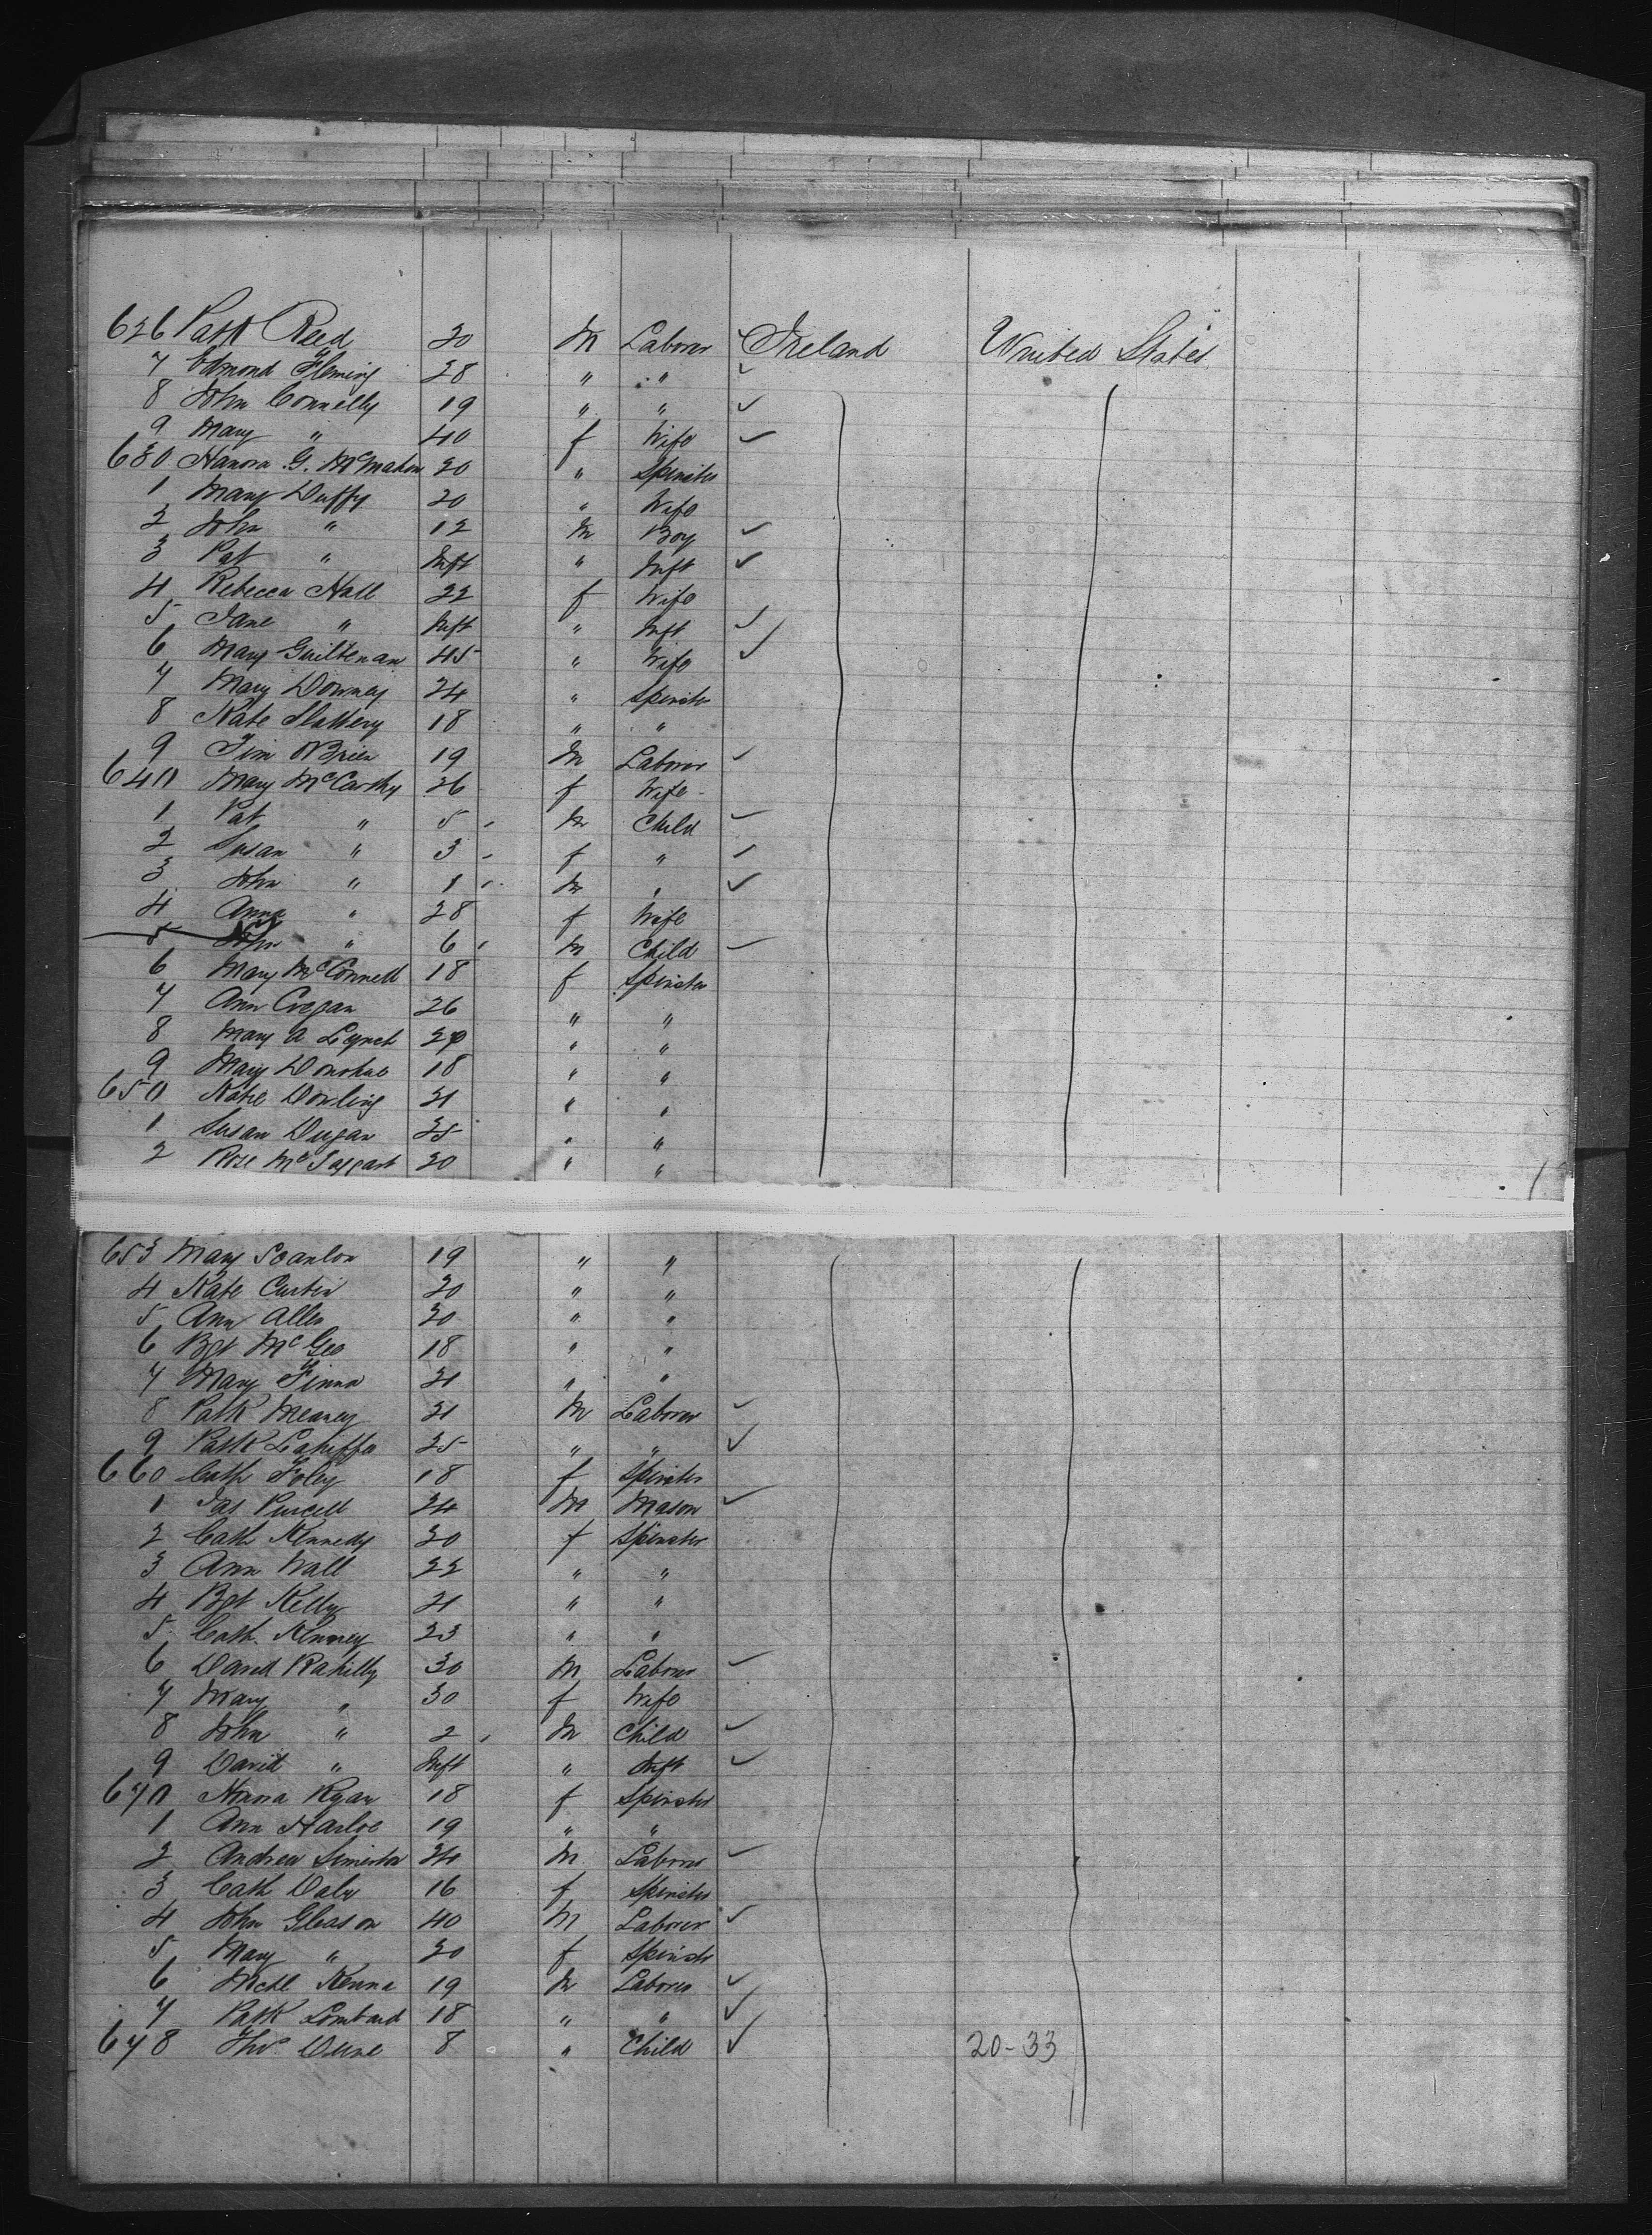 626 Patk Reed 20 M Laborer ✓ Ireland United States
7 Edmond Fleming 28 " " ✓
8 John Connelly 19 " " ✓
9 Mary " 40 f Wife ✓
630 Hanora G. McMahon 20 " Spinster
1 Mary Duffy 20 " Wife
2 John " 12 M Boy ✓
3 Pat " Inft " Inft ✓
4 Rebecca Hall 22 f Wife
5 Jane " Inft " Inft ✓
6 Mary Guiltenan 45 " Wife ✓
7 Mary Downey 24 " Spinster
8 Kate Slattery 18 " "
9 Tim OBrien 19 M Laborer ✓
640 Mary McCarthy 26 f Wife
1 Pat " 5 M Child ✓
2 Susan " 3 f " ✓
3 John " 1 M " ✓
4 Anna " 28 f Wife
5 John " 6 M Child ✓
6 Mary McConnell 18 f Spinster
7 Ann Cregan 26 " "
8 Mary A Lynch " "
9 Mary Donohue 18 " "
650 Katie Dowling 21 " "
1 Susan Dugan 25 " "
2 Rose McTaggart 20 " "
653 Mary Scanlon 19 " "
4 Kate Curtin 20 " "
5 Ann Allen 20 " "
6 Bgt McGee 18 " "
7 Mary Finna 21 " "
8 Patk Meaney 21 M Laborer ✓
9 Patk Lahiffe 25 " " ✓
660 Cath Foley 18 f Spinster
1 Jas Purcell 24 M Mason ✓
2 Cath Kennedy 20 f Spinster
3 Ann Wall 22 " "
4 Bgt Kelly 21 " "
5 Cath. Kenney 23 " "
6 David Rahilly 30 M Laborer ✓
7 Mary " 30 f Wife
8 John " 2 M Child ✓
9 David " Inft " Inft ✓
670 Nora Ryan 18 f Spinster
1 Ann Harloe 19 " "
2 Andrew 24 M Laborer ✓
3 Cath Daly 16 f Spinster
4 John Gleason 40 M Laborer ✓
5 Mary " 20 f Spinster
6 Michl Kenna 19 M Laborer ✓
7 Patk Lombard 18 " " ✓
678 Thos 8 " Child ✓ 20-33